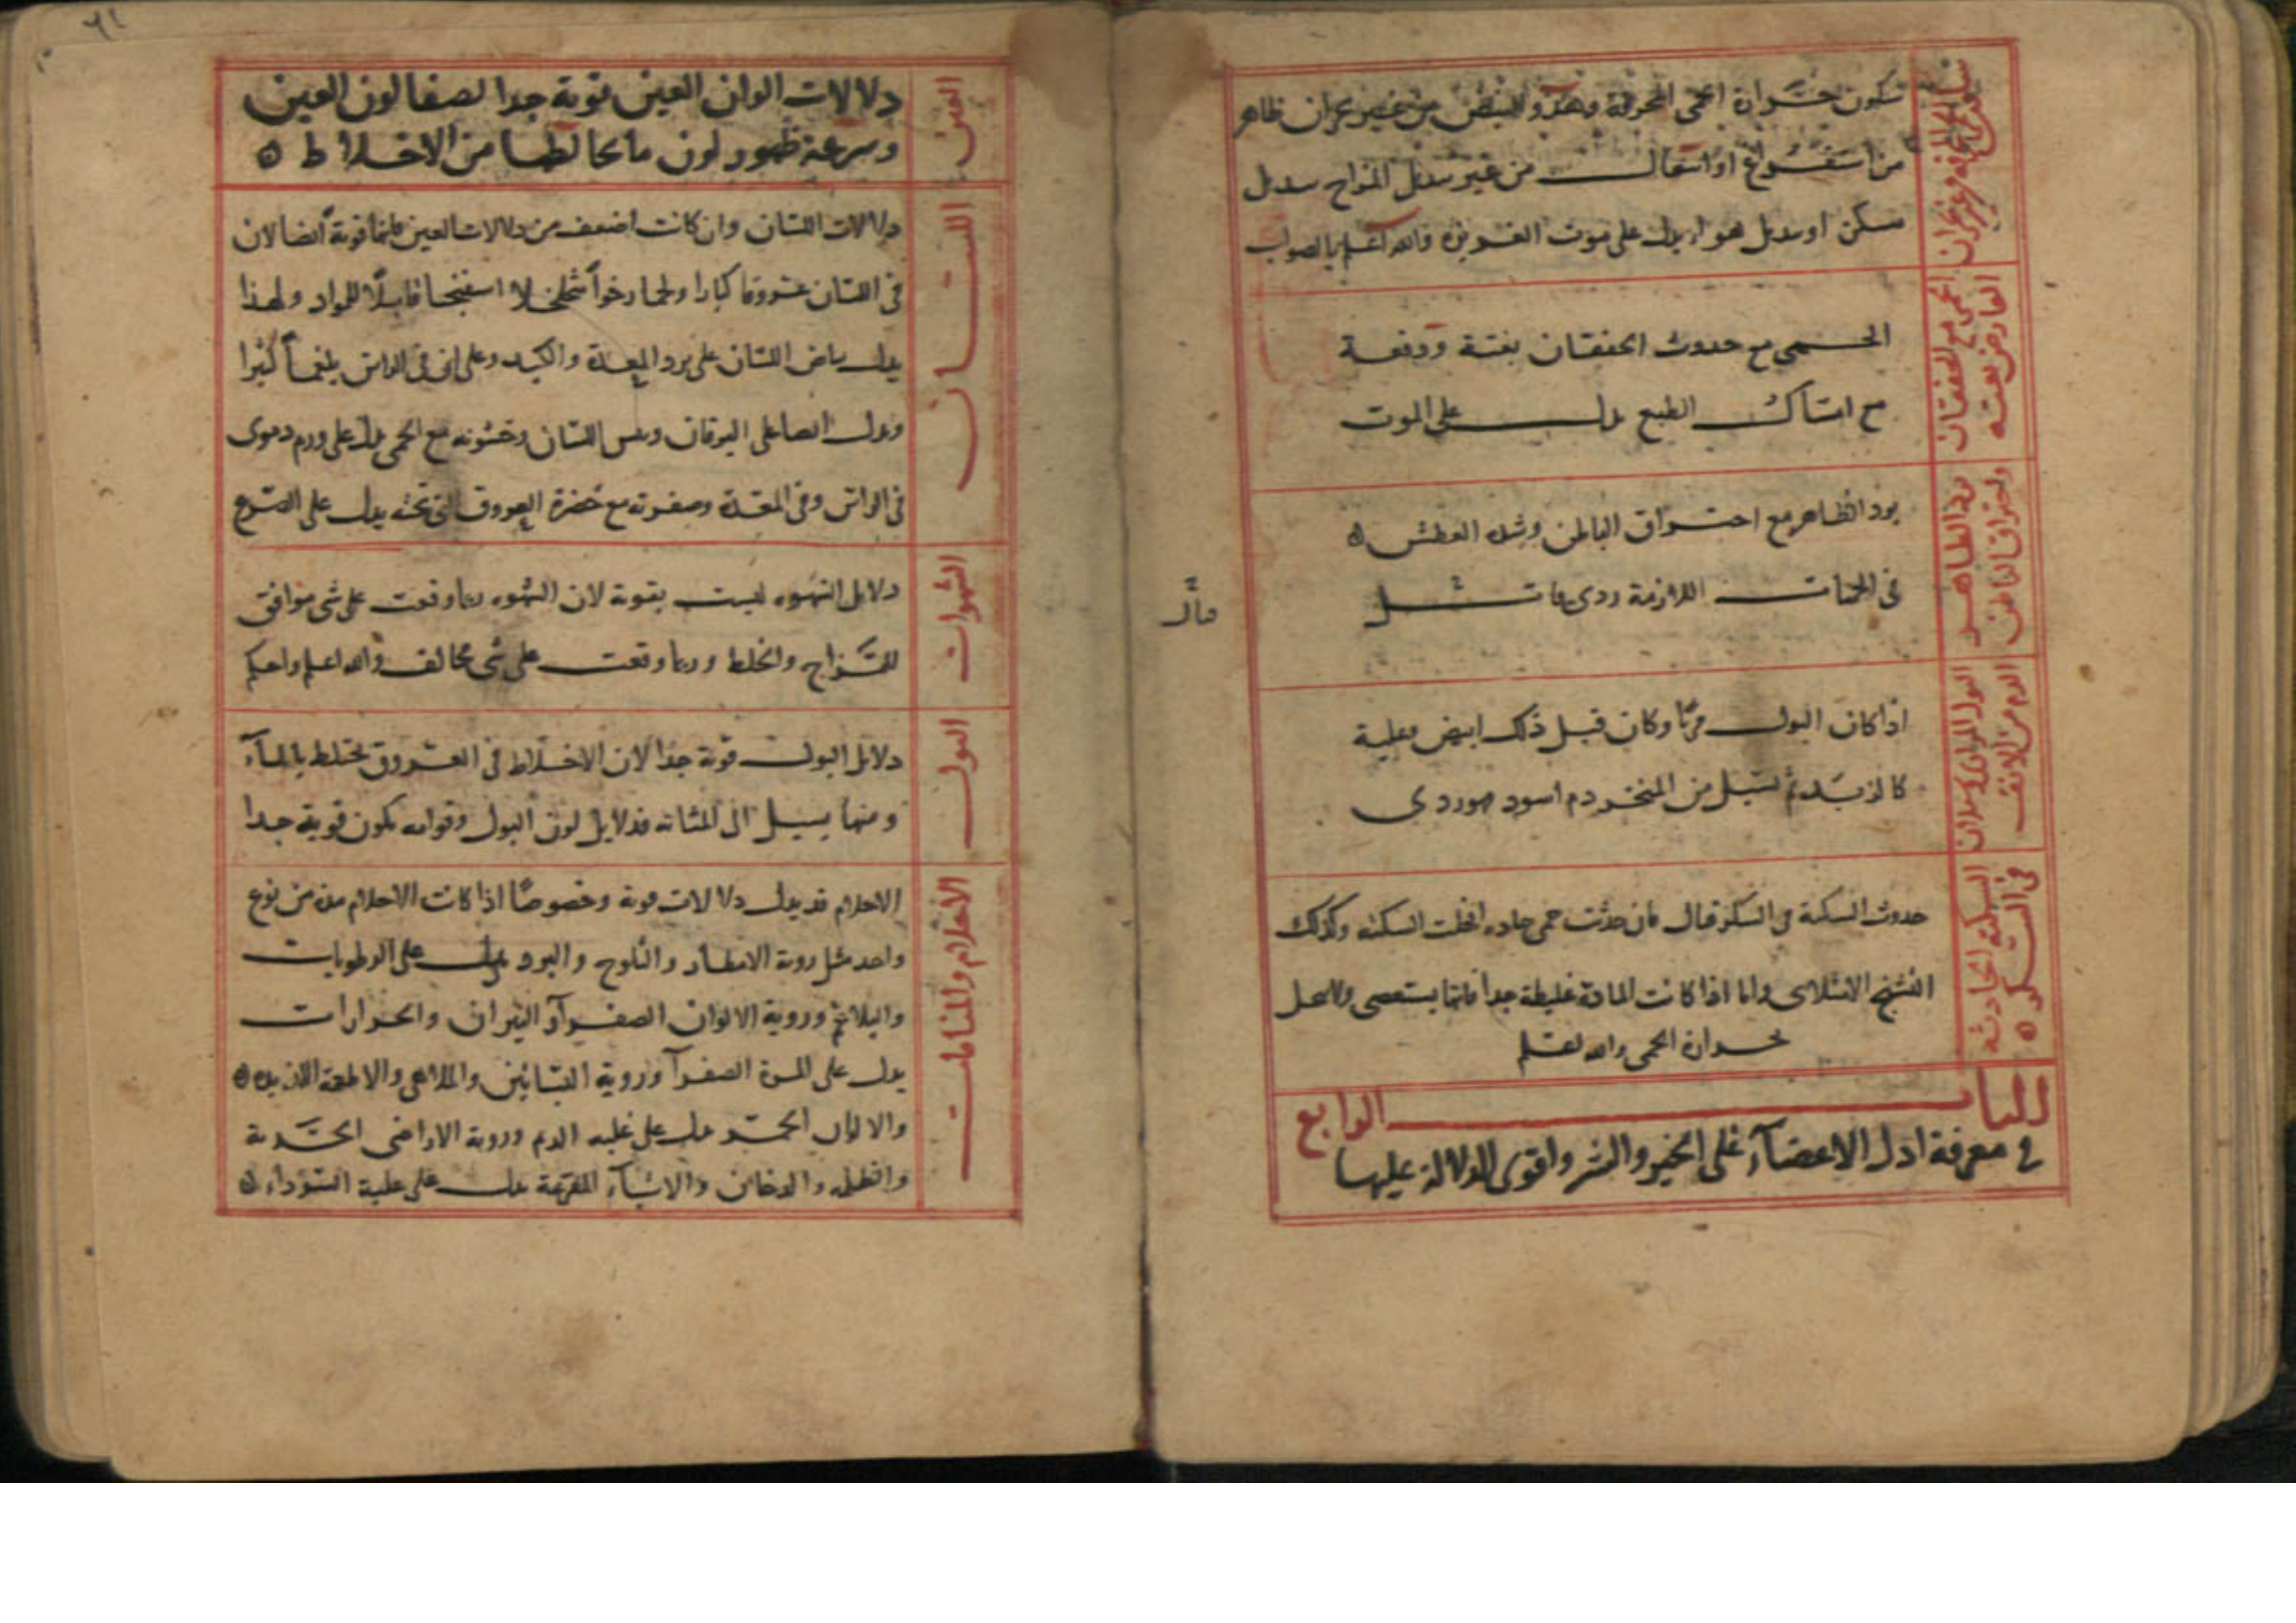 سكون حرارة الحمى المحرقة وهدو النبض من غير بحران ظاهر
من استفراغ او انتقال من غير تبديل المزاج تبديل
مسكن او تبديل هواء يدل على موت الغريزة والله اعلم بالصواب
الحمى مع الخفقان
العارض بغتة
الحمى مع حدوث الخفقان بغتة ودفعة
مع امساك الطبع يدل على الموت
برد الظاهر
واحتراق الباطن
برد الظاهر مع احتراق الباطن وشدة العطش
في الحميات اللازمة ردي قاتل
الدم من الانف
اذا كان البول مريا وكان قبل ذلك ابيض
كالزبد ثم تسيل من المنخر دم اسود فهو ردي
السكتة الحادثة
في السكر
حدوث السكتة في السكر قتال فان حدثت حمى حاده انحلت السكتة وكذلك
التشنج الامتلاى واما اذا كانت المادة غليظة جدا فانما يستعصى ولا ينحل
بحرارة الحمى والله اعلم
الباب الرابع
في معرفة ادل الاعضآء على الخير والشر واقوى الدلالة عليها
٦١
العين
دلالات الوان العين قوية جدا لصفا لون العين
وسرعة ظهور لون ما يخالطها من الاخلاط
اللسان
دلالات اللسان وان كانت اضعف من دلالات العين فانها قوية ايضا لان
في اللسان عروقا كبارا ولحما رخوا متخلخلا اسفنجيا قابلا للمواد ولهذا
يدل بياض اللسان على برد المعدة والكبد وعلى ان في الراس بلغما كثيرا
ويدل ايضا على اليرقان ويبس اللسان وخشونته مع الحمى يدل على ورم دموى
في الراس وفي المعدة وصفرته مع خضرة العروق التي تحته يدل على الصرع
الشهوات
دلايل الشهوه ليست بقوية لان الشهوه ربما وقعت على شى موافق
للمزاج والخلط وربما وقعت على شى مخالف والله اعلم واحكم
البول
دلايل البول قوية جدا لان الاخلاط في العروق تختلط بالمآء
ومنها يسيل الى المثانه فدلايل لون البول وقوامه تكون قوية جدا
الاحلام والمنامات
الاحلام قد يدل دلالات قوية وخصوصا اذا كانت الاحلام من نوع
واحد مثل روية الامطار والثلوج والبرد يدل على الرطوبات
والبلاغم وروية الالوان الصفرآ والنيران والحرارات
يدل على المرة الصفرآ وروية البساتين والملاهى والاطعمة اللذيذه
والالوان الحمر يدل على غلبة الدم وروية الاراضى
والظلمه والدخان والاشيآء المفزعة يدل على غلبة السودآء